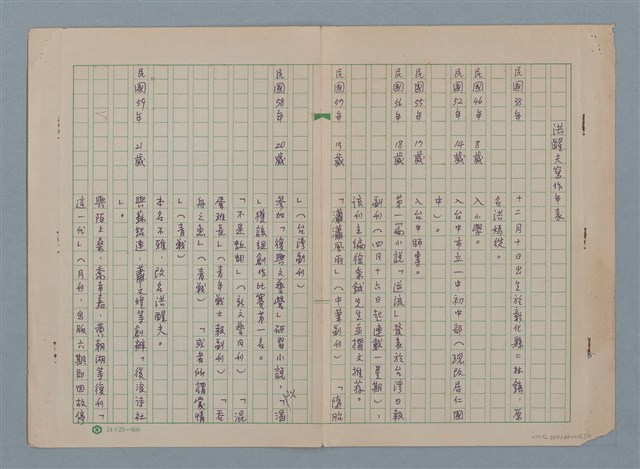 洪醒夫寫作年表
民國38年 十二月十日出生於彰化縣二林鎮，原
名洪媽從。
民國46年 8歲 入小學。
民國52年 14歲 入台中市立一中初中部（現改居仁國
中）。
民國55年 17歲 入台中師專。
民國56年 18歲 第一篇小說「逆流」發表於台灣日報
副刊（四月十六日起連載一星期），
該刊主編徐秉鉞先生並撰文推荐。
民國57年 19歲 「瀟瀟風雨」（中華副刊） 「墮胎
」（台灣副刊）
民國58年 20歲 參加「復興文藝營」研習小說，以「潘
」獲該組創作比賽第一名。
「不是蚯蚓」（新文藝月刊） 「混
（青年戰士報副刊） 「吞
舟之魚」（青戰） 「或者所謂愛情
」（青戰）
本名不雅，改名洪醒夫。
民國59年 21歲 與蘇紹連、蕭文煌等創辦「後浪詩社
」。
與陌上桑、喬幸嘉、黃朝湖等復刊「
這一代」（月刊，出版六期即因故停
24×25=600